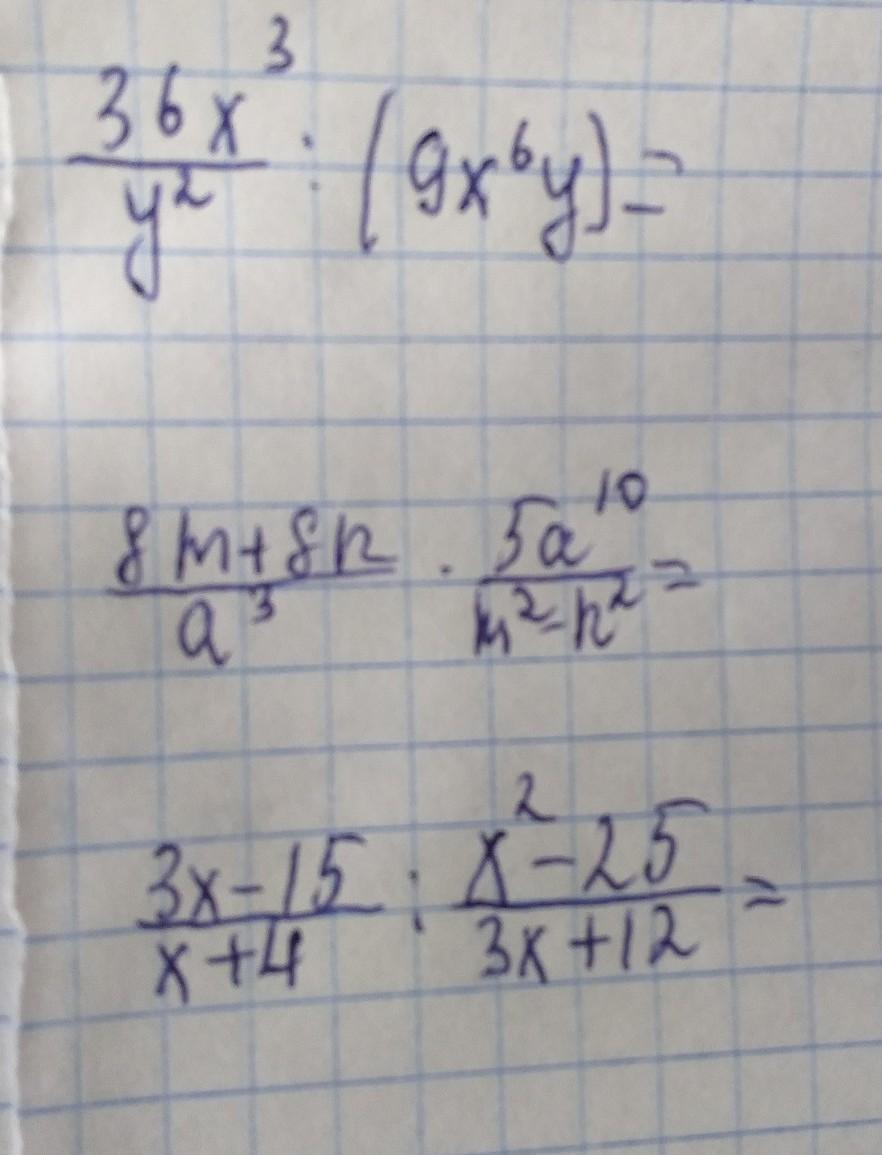 36x³/y² : (9x⁶y) =
8m+8n/a³ · 5a¹⁰/m²-n² =
3x-15/x+4 : x²-25/3x+12 =